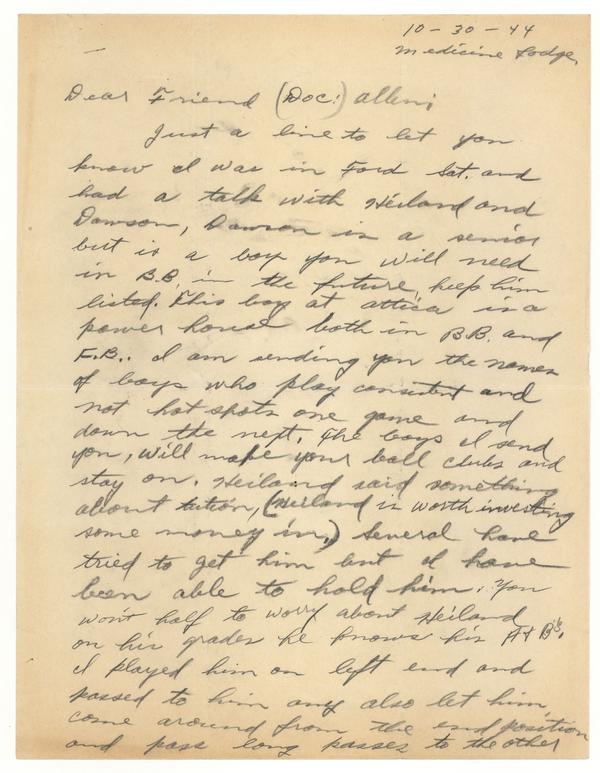 10-30-44
Medicine Lodge,
Dear Friend (Doc.) Allen;
Just a line to let you
know I was in Ford Sat. and
had a talk with Heiland and
Dawson, Dawson is a senior
but is a boy you will need
in B.B. in the future, keep him
listed. This boy at Attica is a
power house both in B.B. and
F.B.. I am sending you the names
of boys who play consistent and
not hot shots one game and
down the next. The boys I send
you, will make your ball clubs and
stay on. Heiland said something
about tution, (Heiland is worth investing
some money in,) Several have
tried to get him but I have
been able to hold him. You
won't half to worry about Heiland
on his grades he knows his A & B's.
I played him on left end and
passed to him any also let him
come around from the end position
and pass long passes to the other